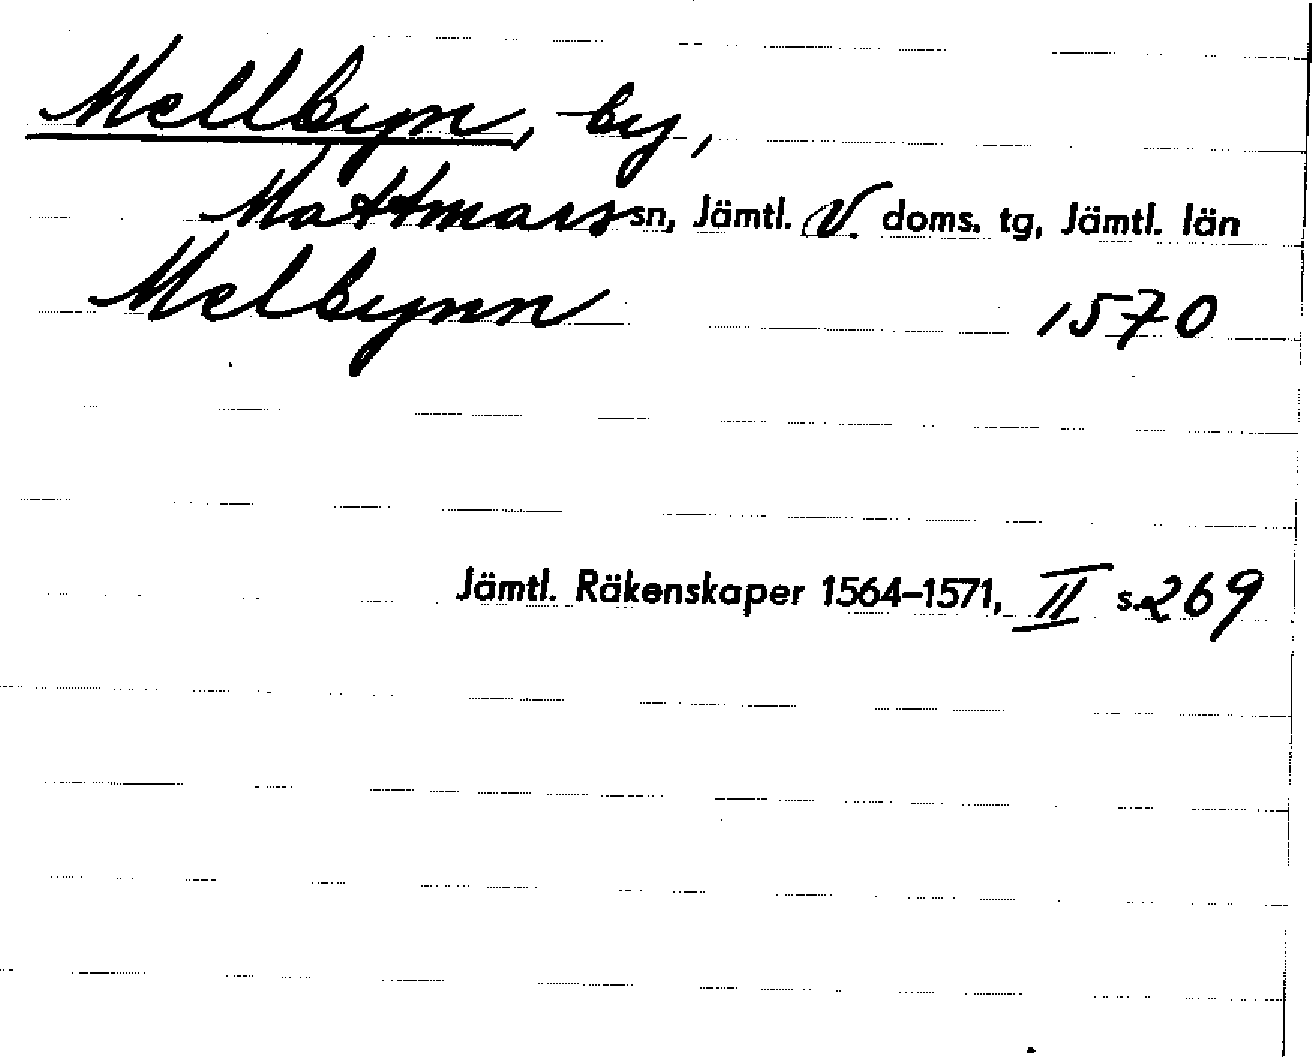 Mellbyn, by,
Mattmars sn, Jämtl. V. doms. tg, Jämtl. län
Melbynn 1570
Jämtl. Räkenskaper 1564–1571, II s. 269